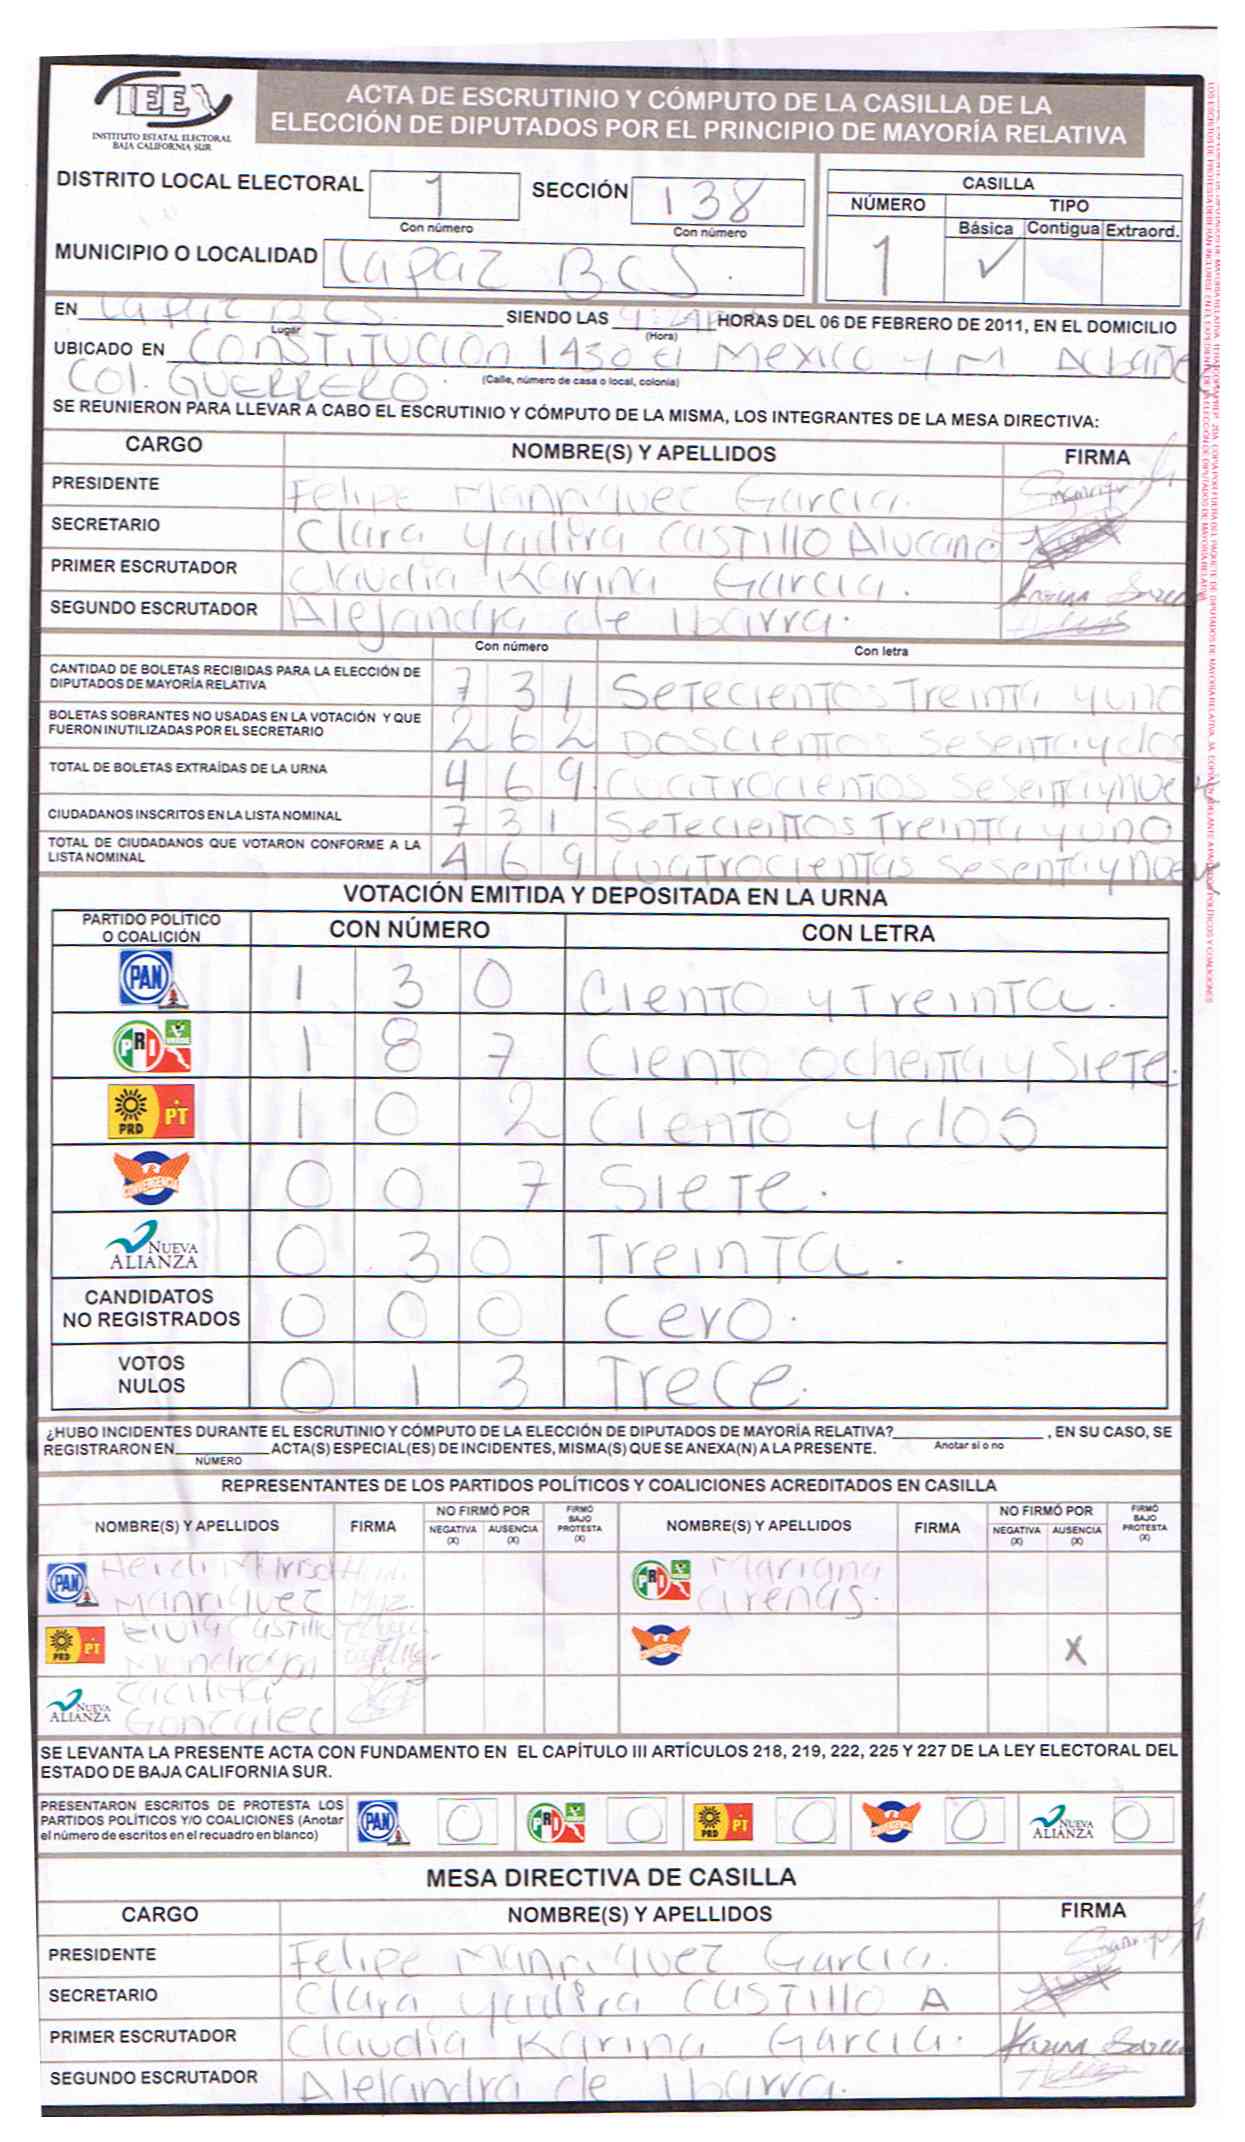 IEE
INSTITUTO ESTATAL ELECTORAL
BAJA CALIFORNIA SUR
ACTA DE ESCRUTINIO Y CÓMPUTO DE LA CASILLA DE LA
ELECCIÓN DE DIPUTADOS POR EL PRINCIPIO DE MAYORÍA RELATIVA
DISTRITO LOCAL ELECTORAL 1 SECCIÓN 138
Con número Con número
CASILLA
NÚMERO TIPO
Básica Contigua Extraord.
1 ✓
MUNICIPIO O LOCALIDAD Lapaz B.C.S.
EN Lapaz BCS. SIENDO LAS HORAS DEL 06 DE FEBRERO DE 2011, EN EL DOMICILIO
Lugar (Hora)
UBICADO EN CONSTITUCION 1430 et Mexico y M
Col. GUERRERO. (Calle, número de casa o local, colonia)
SE REUNIERON PARA LLEVAR A CABO EL ESCRUTINIO Y CÓMPUTO DE LA MISMA, LOS INTEGRANTES DE LA MESA DIRECTIVA:
CARGO NOMBRE(S) Y APELLIDOS FIRMA
PRESIDENTE Felipe Manriquez Garcia.
SECRETARIO Clara Yadira CASTILLO
PRIMER ESCRUTADOR Claudia Karina Garcia.
SEGUNDO ESCRUTADOR Alejandra de Ibarra.
Con número Con letra
CANTIDAD DE BOLETAS RECIBIDAS PARA LA ELECCIÓN DE
DIPUTADOS DE MAYORÍA RELATIVA 7 3 1 SETECIENTOS Treinta y uno
BOLETAS SOBRANTES NO USADAS EN LA VOTACIÓN Y QUE
FUERON INUTILIZADAS POR EL SECRETARIO 2 6 2 DOSCIENTOS sesenta y dos
TOTAL DE BOLETAS EXTRAÍDAS DE LA URNA 4 6 9. cuatrocientos sesenta y nueve
CIUDADANOS INSCRITOS EN LA LISTA NOMINAL 7 3 1 SETECIENTOS Treinta y uno
TOTAL DE CIUDADANOS QUE VOTARON CONFORME A LA
LISTA NOMINAL 4 6 9 cuatrocientas sesenta y nueve
VOTACIÓN EMITIDA Y DEPOSITADA EN LA URNA
PARTIDO POLÍTICO
O COALICIÓN CON NÚMERO CON LETRA
PAN 1 3 0 Ciento y Treinta.
PRI VERDE 1 8 7 Ciento ochenta y SIETE.
PRD PT 1 0 2 Ciento y dos
CONVERGENCIA 0 0 7 SIETE.
NUEVA ALIANZA 0 3 0 Treinta.
CANDIDATOS
NO REGISTRADOS 0 0 0 Cero.
VOTOS
NULOS 0 1 3 Trece.
¿HUBO INCIDENTES DURANTE EL ESCRUTINIO Y CÓMPUTO DE LA ELECCIÓN DE DIPUTADOS DE MAYORÍA RELATIVA? , EN SU CASO, SE
Anotar si o no
REGISTRARON EN ACTA(S) ESPECIAL(ES) DE INCIDENTES, MISMA(S) QUE SE ANEXA(N) A LA PRESENTE.
NÚMERO
REPRESENTANTES DE LOS PARTIDOS POLÍTICOS Y COALICIONES ACREDITADOS EN CASILLA
NOMBRE(S) Y APELLIDOS FIRMA NO FIRMÓ POR NEGATIVA (X) AUSENCIA (X) FIRMÓ BAJO PROTESTA (X) NOMBRE(S) Y APELLIDOS FIRMA NO FIRMÓ POR NEGATIVA (X) AUSENCIA (X) FIRMÓ BAJO PROTESTA (X)
PAN Heidi PRI Mariana
Manriquez Arenas.
PRD PT Castillo CONVERGENCIA X
Mondragon
NUEVA ALIANZA
Gonzalez
SE LEVANTA LA PRESENTE ACTA CON FUNDAMENTO EN EL CAPÍTULO III ARTÍCULOS 218, 219, 222, 225 Y 227 DE LA LEY ELECTORAL DEL
ESTADO DE BAJA CALIFORNIA SUR.
PRESENTARON ESCRITOS DE PROTESTA LOS
PARTIDOS POLÍTICOS Y/O COALICIONES (Anotar
el número de escritos en el recuadro en blanco)
PAN 0 PRI VERDE 0 PRD PT 0 CONVERGENCIA 0 NUEVA ALIANZA 0
MESA DIRECTIVA DE CASILLA
CARGO NOMBRE(S) Y APELLIDOS FIRMA
PRESIDENTE Felipe Manriquez Garcia.
SECRETARIO Clara Yadira CASTILLO A
PRIMER ESCRUTADOR Claudia Karina Garcia.
SEGUNDO ESCRUTADOR Alejandra de Ibarra.